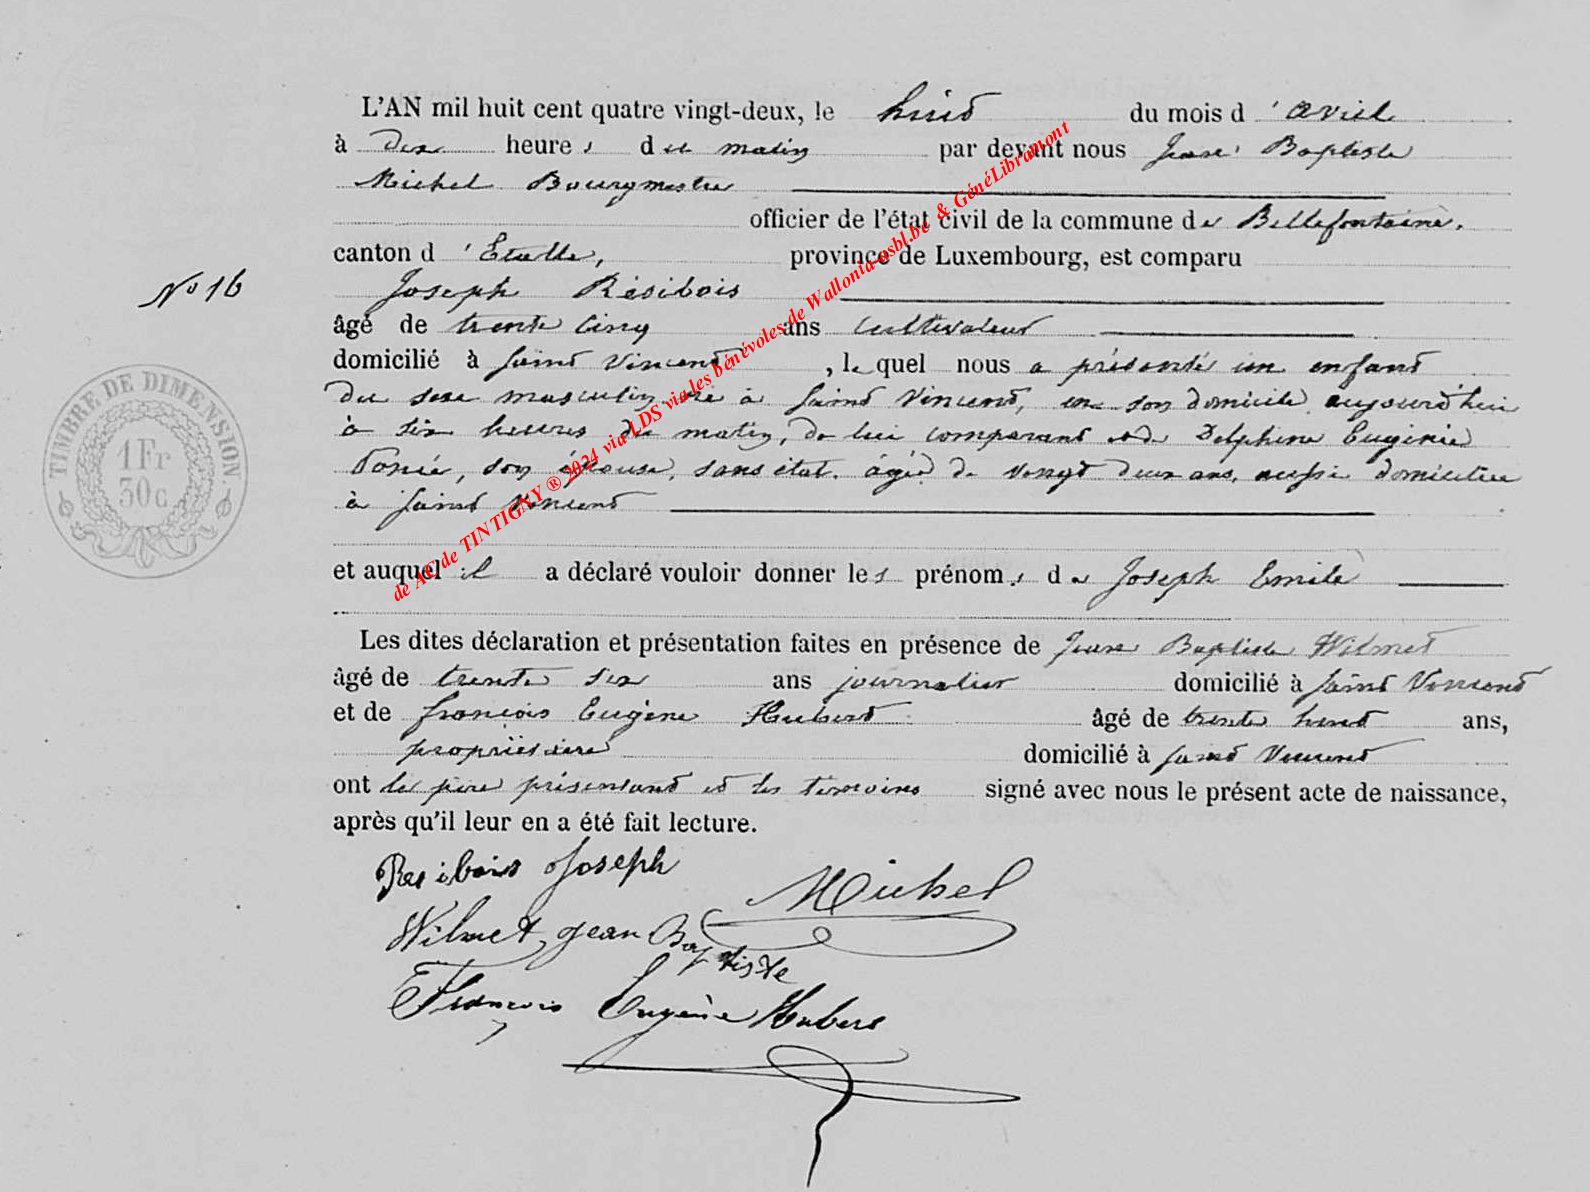 L'AN mil huit cent quatre vingt-deux, le huit du mois d 'avril
à dix heure s du matin par devant nous Jean Baptiste
Michel Bourgmestre
officier de l'état civil de la commune de Bellefontaine,
canton d 'Etalle, province de Luxembourg, est comparu
N° 16
Joseph Résibois
âgé de trente cinq ans cultivateur
domicilié à Saint Vincent, le quel nous a présenté un enfant
du sexe masculin né à Saint Vincent, en son domicile aujourd'hui
à six heures du matin, de lui comparant et de Delphine Eugénie
son épouse, sans état, âgée de vingt deux ans, aussi domiciliée
à Saint Vincent
et auquel il a déclaré vouloir donner les prénoms de Joseph Emile
Les dites déclaration et présentation faites en présence de Jean Baptiste Wilmet
âgé de trente six ans journalier domicilié à Saint Vincent
et de François Eugène Hubert âgé de trente huit ans,
propriétaire domicilié à Saint Vincent
ont le père présentant et les témoins signé avec nous le présent acte de naissance,
après qu'il leur en a été fait lecture.
Resibois Joseph
Michel
Wilmet, Jean Baptiste
François Eugène Hubert
TIMBRE DE DIMENSION
1 Fr
30 c
de AC de TINTIGNY ® 2024 via LDS via les bénévoles de Wallonia-asbl.be & GénéLibramont